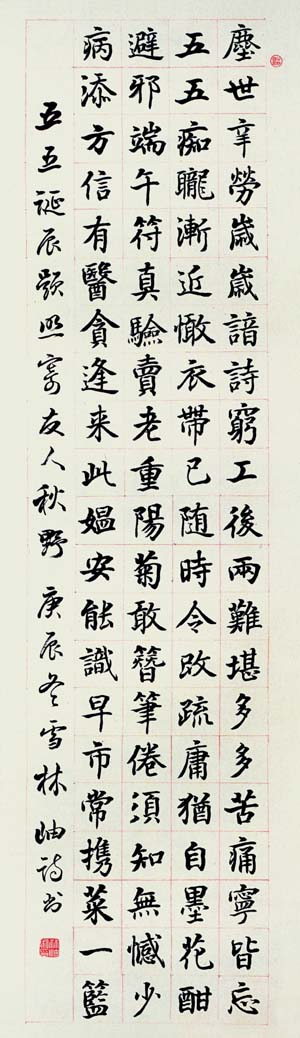 塵世辛勞歲歲諳詩窮工後兩難堪多多苦痛寧皆忘
五五痴矓漸近憨衣帶已随時令改疏庸猶自墨花酣
避邪端午符真驗賣老重陽菊敢簪筆倦須知無憾少
病添方信有醫貪逢来此媪安能識早市常携菜一籃
五五诞辰题照寄友人秋野 庚辰冬雪林岫詩书